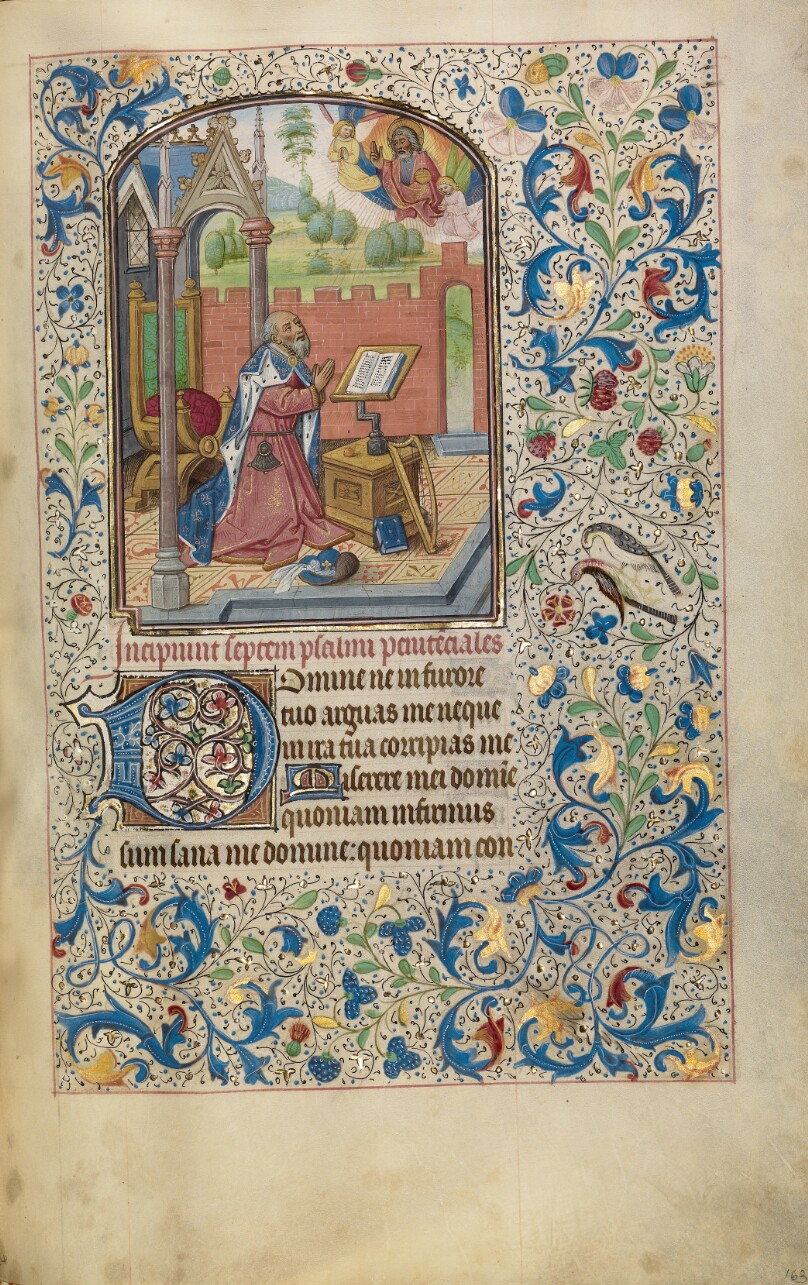 Incipiunt septem psalmi peniteciales
Domine ne in furore
tuo arguas me neque
in ira tua corripias me
Miserere mei domīe
quoniam infirmus
sum sana me domine: quoniam con